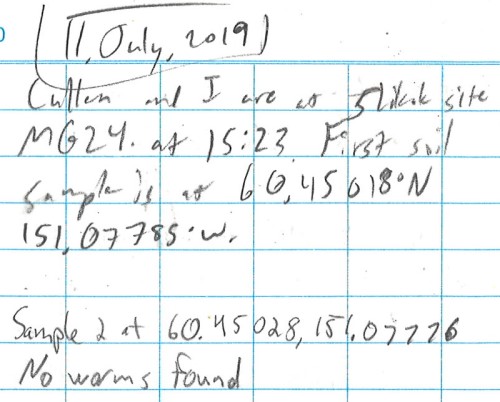 (11, July, 2019)
Cullen and I are at Slikok site
MG24. at 15:23. First soil
sample is at 60,45018°N
151,07785°W.
Sample 2 at 60.45028, 151.07776
No worms found